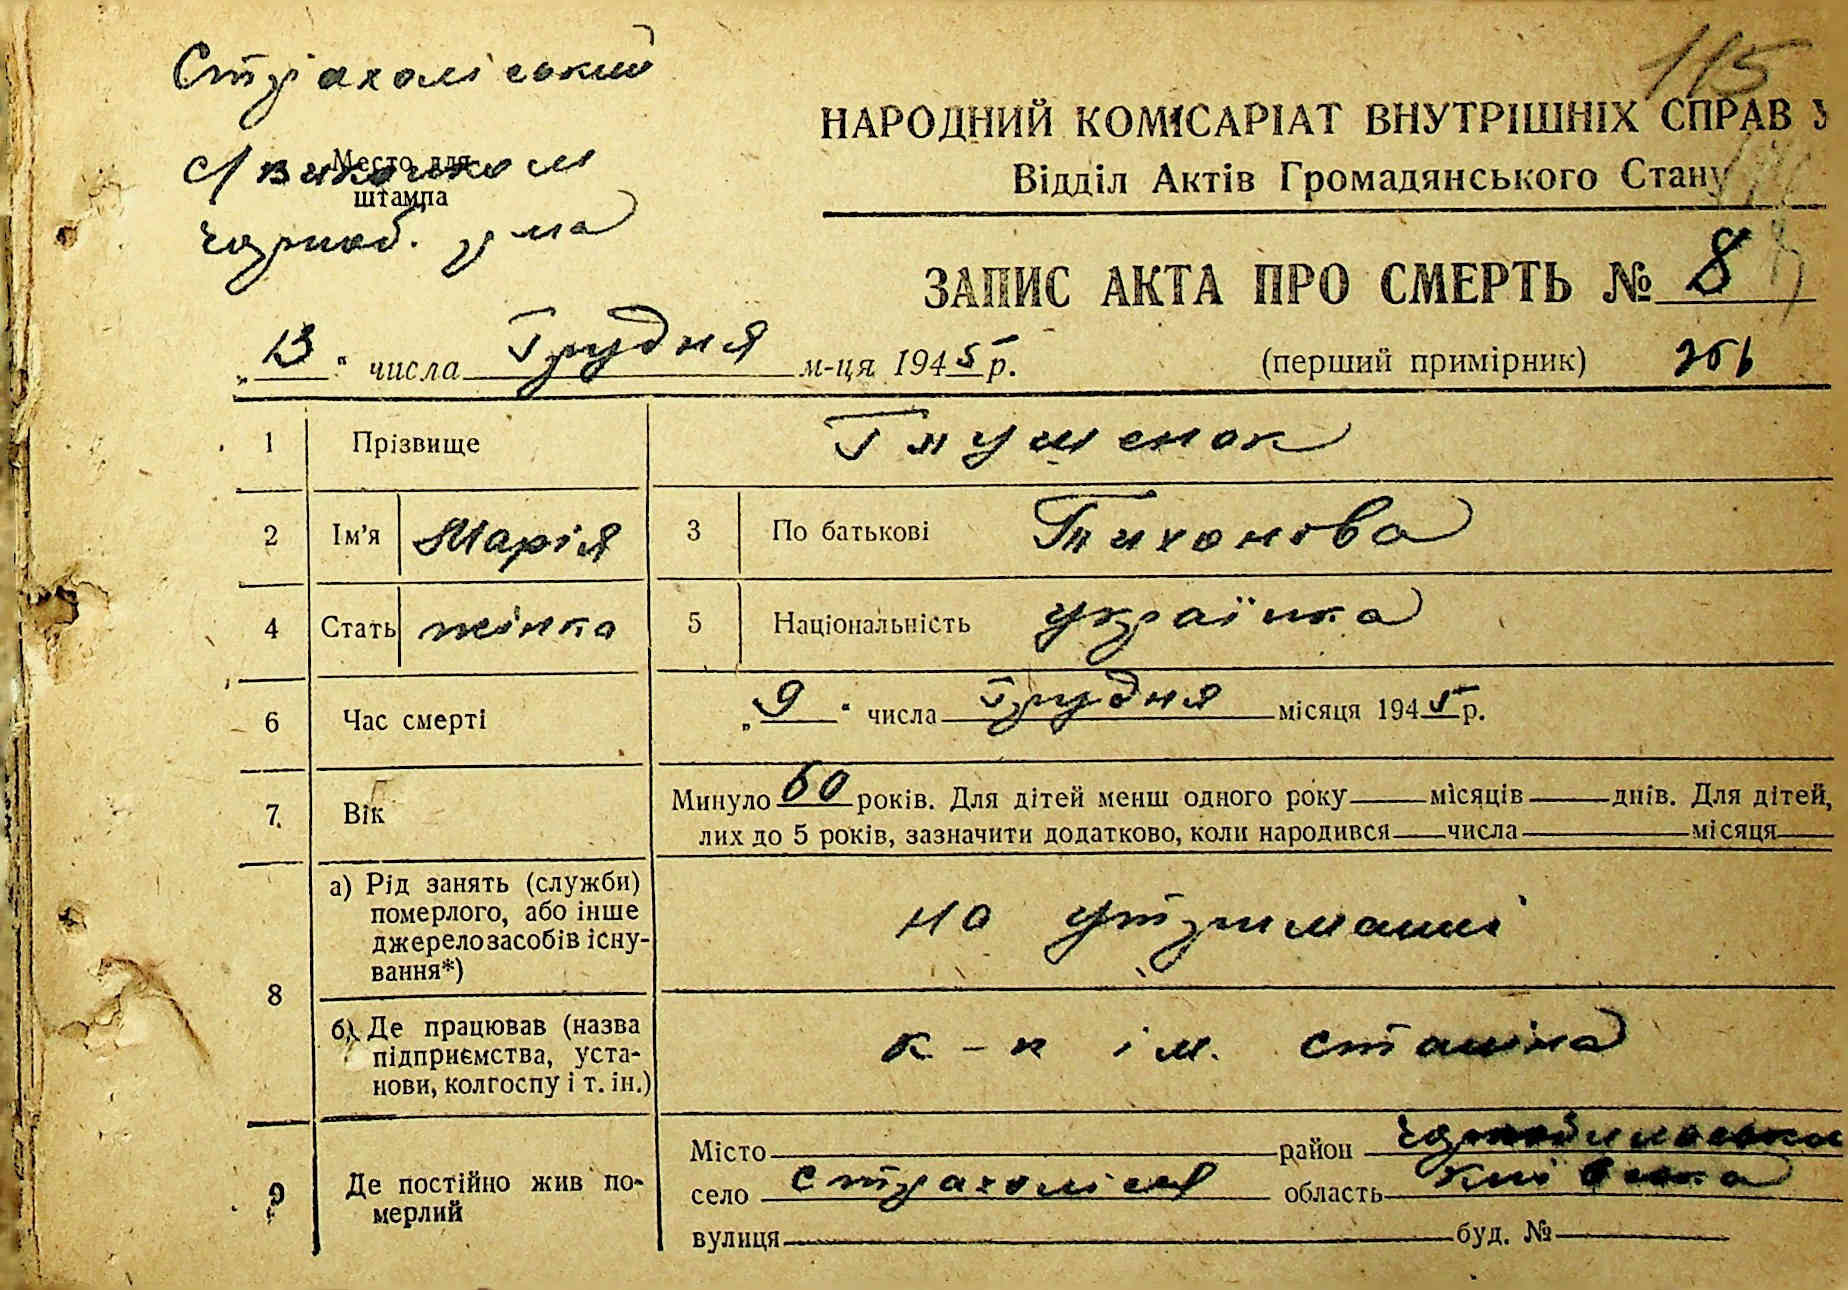 Страхоліський
115
с/виконком
Место для
штампа
чорноб. р-на
НАРОДНИЙ КОМІСАРІАТ ВНУТРІШНІХ СПРАВ У
Відділ Актів Громадянського Стану
ЗАПИС АКТА ПРО СМЕРТЬ № 8
„13“ числа Грудня м-ця 1945 р. (перший примірник)
1 Прізвище
2 Ім'я Марія 3 По батькові Тихонова
4 Стать жінка 5 Національність українка
6 Час смерті „9“ числа Грудня місяця 1945 р.
7 Вік Минуло 60 років. Для дітей менш одного року — місяців — днів. Для дітей,
лих до 5 років, зазначити додатково, коли народився — числа — місяця
8 а) Рід занять (служби)
померлого, або інше
джерело засобів існу-
вання*)
на утриманні
б) Де працював (назва
підприємства, уста-
нови, колгоспу і т. ін.)
к-п ім. сталіна
9 Де постійно жив по-
мерлий
Місто — район чорнобильськи
село страхолісся область київська
вулиця — буд. № —